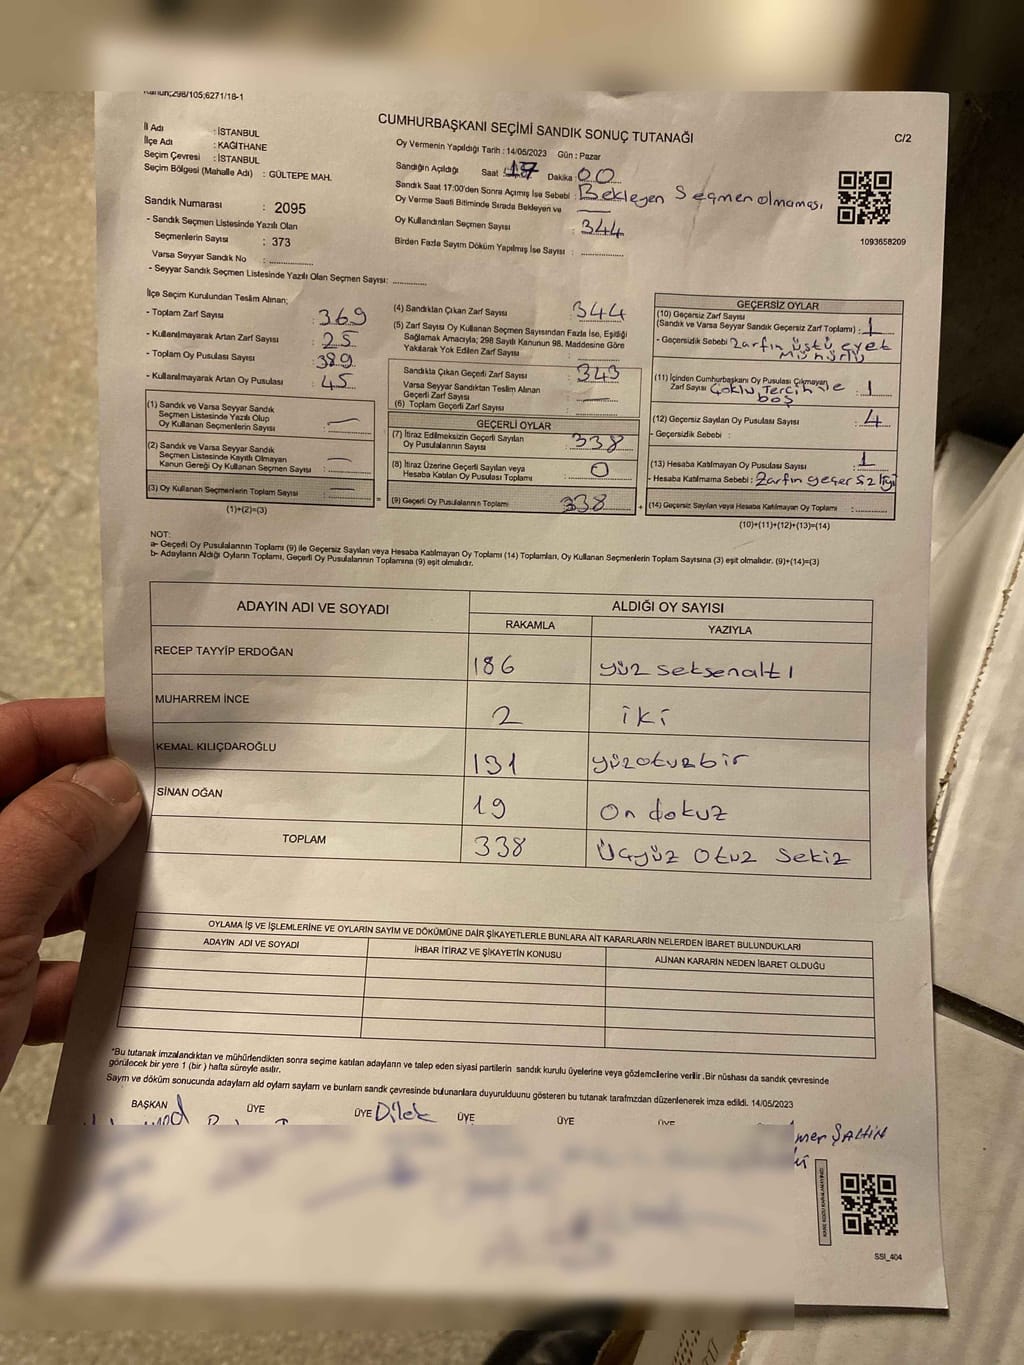 Kanun;298/105;6271/18-1
CUMHURBAŞKANI SEÇİMİ SANDIK SONUÇ TUTANAĞI
C/2
İl Adı : İSTANBUL
İlçe Adı : KAĞITHANE
Seçim Çevresi : İSTANBUL
Seçim Bölgesi (Mahalle Adı) : GÜLTEPE MAH.
Sandık Numarası : 2095
- Sandık Seçmen Listesinde Yazılı Olan
Seçmenlerin Sayısı : 373
Varsa Seyyar Sandık No :
- Seyyar Sandık Seçmen Listesinde Yazılı Olan Seçmen Sayısı:
Oy Vermenin Yapıldığı Tarih : 14/05/2023 Gün : Pazar
Sandığın Açıldığı Saat : 17 Dakika : 00
Sandık Saat 17:00'den Sonra Açılmış İse Sebebi : Bekleyen Seçmen olmaması
Oy Verme Saati Bitiminde Sırada Bekleyen ve
Oy Kullandırılan Seçmen Sayısı : 344
Birden Fazla Sayım Döküm Yapılmış İse Sayısı :
1093658209
İlçe Seçim Kurulundan Teslim Alınan;
- Toplam Zarf Sayısı : 369
- Kullanılmayarak Artan Zarf Sayısı : 25
- Toplam Oy Pusulası Sayısı : 389
- Kullanılmayarak Artan Oy Pusulası : 45
(1) Sandık ve Varsa Seyyar Sandık
Seçmen Listesinde Yazılı Olup
Oy Kullanan Seçmenlerin Sayısı :
(2) Sandık ve Varsa Seyyar Sandık
Seçmen Listesinde Kayıtlı Olmayan
Kanun Gereği Oy Kullanan Seçmen Sayısı :
(3) Oy Kullanan Seçmenlerin Toplam Sayısı :
(1)+(2)=(3)
(4) Sandıktan Çıkan Zarf Sayısı : 344
(5) Zarf Sayısı Oy Kullanan Seçmen Sayısından Fazla İse, Eşitliği
Sağlamak Amacıyla; 298 Sayılı Kanunun 98. Maddesine Göre
Yakılarak Yok Edilen Zarf Sayısı :
Sandıkta Çıkan Geçerli Zarf Sayısı : 343
Varsa Seyyar Sandıktan Teslim Alınan
Geçerli Zarf Sayısı :
(6) Toplam Geçerli Zarf Sayısı :
GEÇERLİ OYLAR
(7) İtiraz Edilmeksizin Geçerli Sayılan
Oy Pusulalarının Sayısı : 338
(8) İtiraz Üzerine Geçerli Sayılan veya
Hesaba Katılan Oy Pusulası Toplamı : 0
(9) Geçerli Oy Pusulalarının Toplamı : 338
GEÇERSİZ OYLAR
(10) Geçersiz Zarf Sayısı
(Sandık ve Varsa Seyyar Sandık Geçersiz Zarf Toplamı) : 1
- Geçersizlik Sebebi : Zarfın üstü evet
Mühürlü
(11) İçinden Cumhurbaşkanı Oy Pusulası Çıkmayan
Zarf Sayısı : Çoklu Tercih ile 1
boş
(12) Geçersiz Sayılan Oy Pusulası Sayısı : 4
- Geçersizlik Sebebi :
(13) Hesaba Katılmayan Oy Pusulası Sayısı : 1
- Hesaba Katılmama Sebebi : Zarfın geçersizliği
(14) Geçersiz Sayılan veya Hesaba Katılmayan Oy Toplamı :
(10)+(11)+(12)+(13)=(14)
NOT:
a- Geçerli Oy Pusulalarının Toplamı (9) ile Geçersiz Sayılan veya Hesaba Katılmayan Oy Toplamı (14) Toplamları, Oy Kullanan Seçmenlerin Toplam Sayısına (3) eşit olmalıdır. (9)+(14)=(3)
b- Adayların Aldığı Oyların Toplamı, Geçerli Oy Pusulalarının Toplamına (9) eşit olmalıdır.
ADAYIN ADI VE SOYADI ALDIĞI OY SAYISI
RAKAMLA YAZIYLA
RECEP TAYYİP ERDOĞAN 186 yüz seksenaltı
MUHARREM İNCE 2 iki
KEMAL KILIÇDAROĞLU 131 yüzotuzbir
SİNAN OĞAN 19 On dokuz
TOPLAM 338 Üçyüz Otuz Sekiz
OYLAMA İŞ VE İŞLEMLERİNE VE OYLARIN SAYIM VE DÖKÜMÜNE DAİR ŞİKAYETLERLE BUNLARA AİT KARARLARIN NELERDEN İBARET BULUNDUKLARI
ADAYIN ADI VE SOYADI İHBAR İTİRAZ VE ŞİKAYETİN KONUSU ALINAN KARARIN NEDEN İBARET OLDUĞU
*Bu tutanak imzalandıktan ve mühürlendikten sonra seçime katılan adayların ve talep eden siyasi partilerin sandık kurulu üyelerine veya gözlemcilerine verilir. Bir nüshası da sandık çevresinde
görülecek bir yere 1 (bir ) hafta süreyle asılır.
Sayım ve döküm sonucunda adayların aldı oyların sayların ve bunların sandk çevresinde bulunanlara duyurulduunu gösteren bu tutanak tarafmzdan düzenlenerek imza edildi. 14/05/2023
BAŞKAN ÜYE ÜYE Dilek ÜYE ÜYE ÜYE
mer ŞAHİN
SSI_404